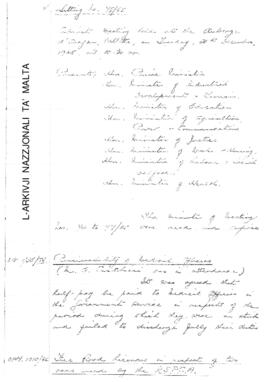 Sitting No. 48/65
Cabinet Meeting held at the Auberge
d'Aragon, Valletta, on Tuesday, 28th December,
1965, at 10.30 am
Present: Hon. Prime Minister
Hon. Minister of Industrial
Development & Tourism.
Hon. Minister of Education
Hon. Minister of Agriculture,
Power & Communications
Hon. Minister of Justice
Hon. Minister of Works & Housing.
Hon. Minister of Labour & Social
Welfare
Hon. Minister of Health.
L-ARKIVJI NAZZJONALI TA' MALTA
The minutes of meeting
Nos. to 47/65 were read and
of Medical Officers
(Mr. was in attendance)
It was agreed that
half-pay be paid to Medical Officers in
the Government Service in respect of the
periods during which they were on strike
and failed to discharge fully their duties
Free Road Licences in respect of two
vans used by the R.S.P.C.A.